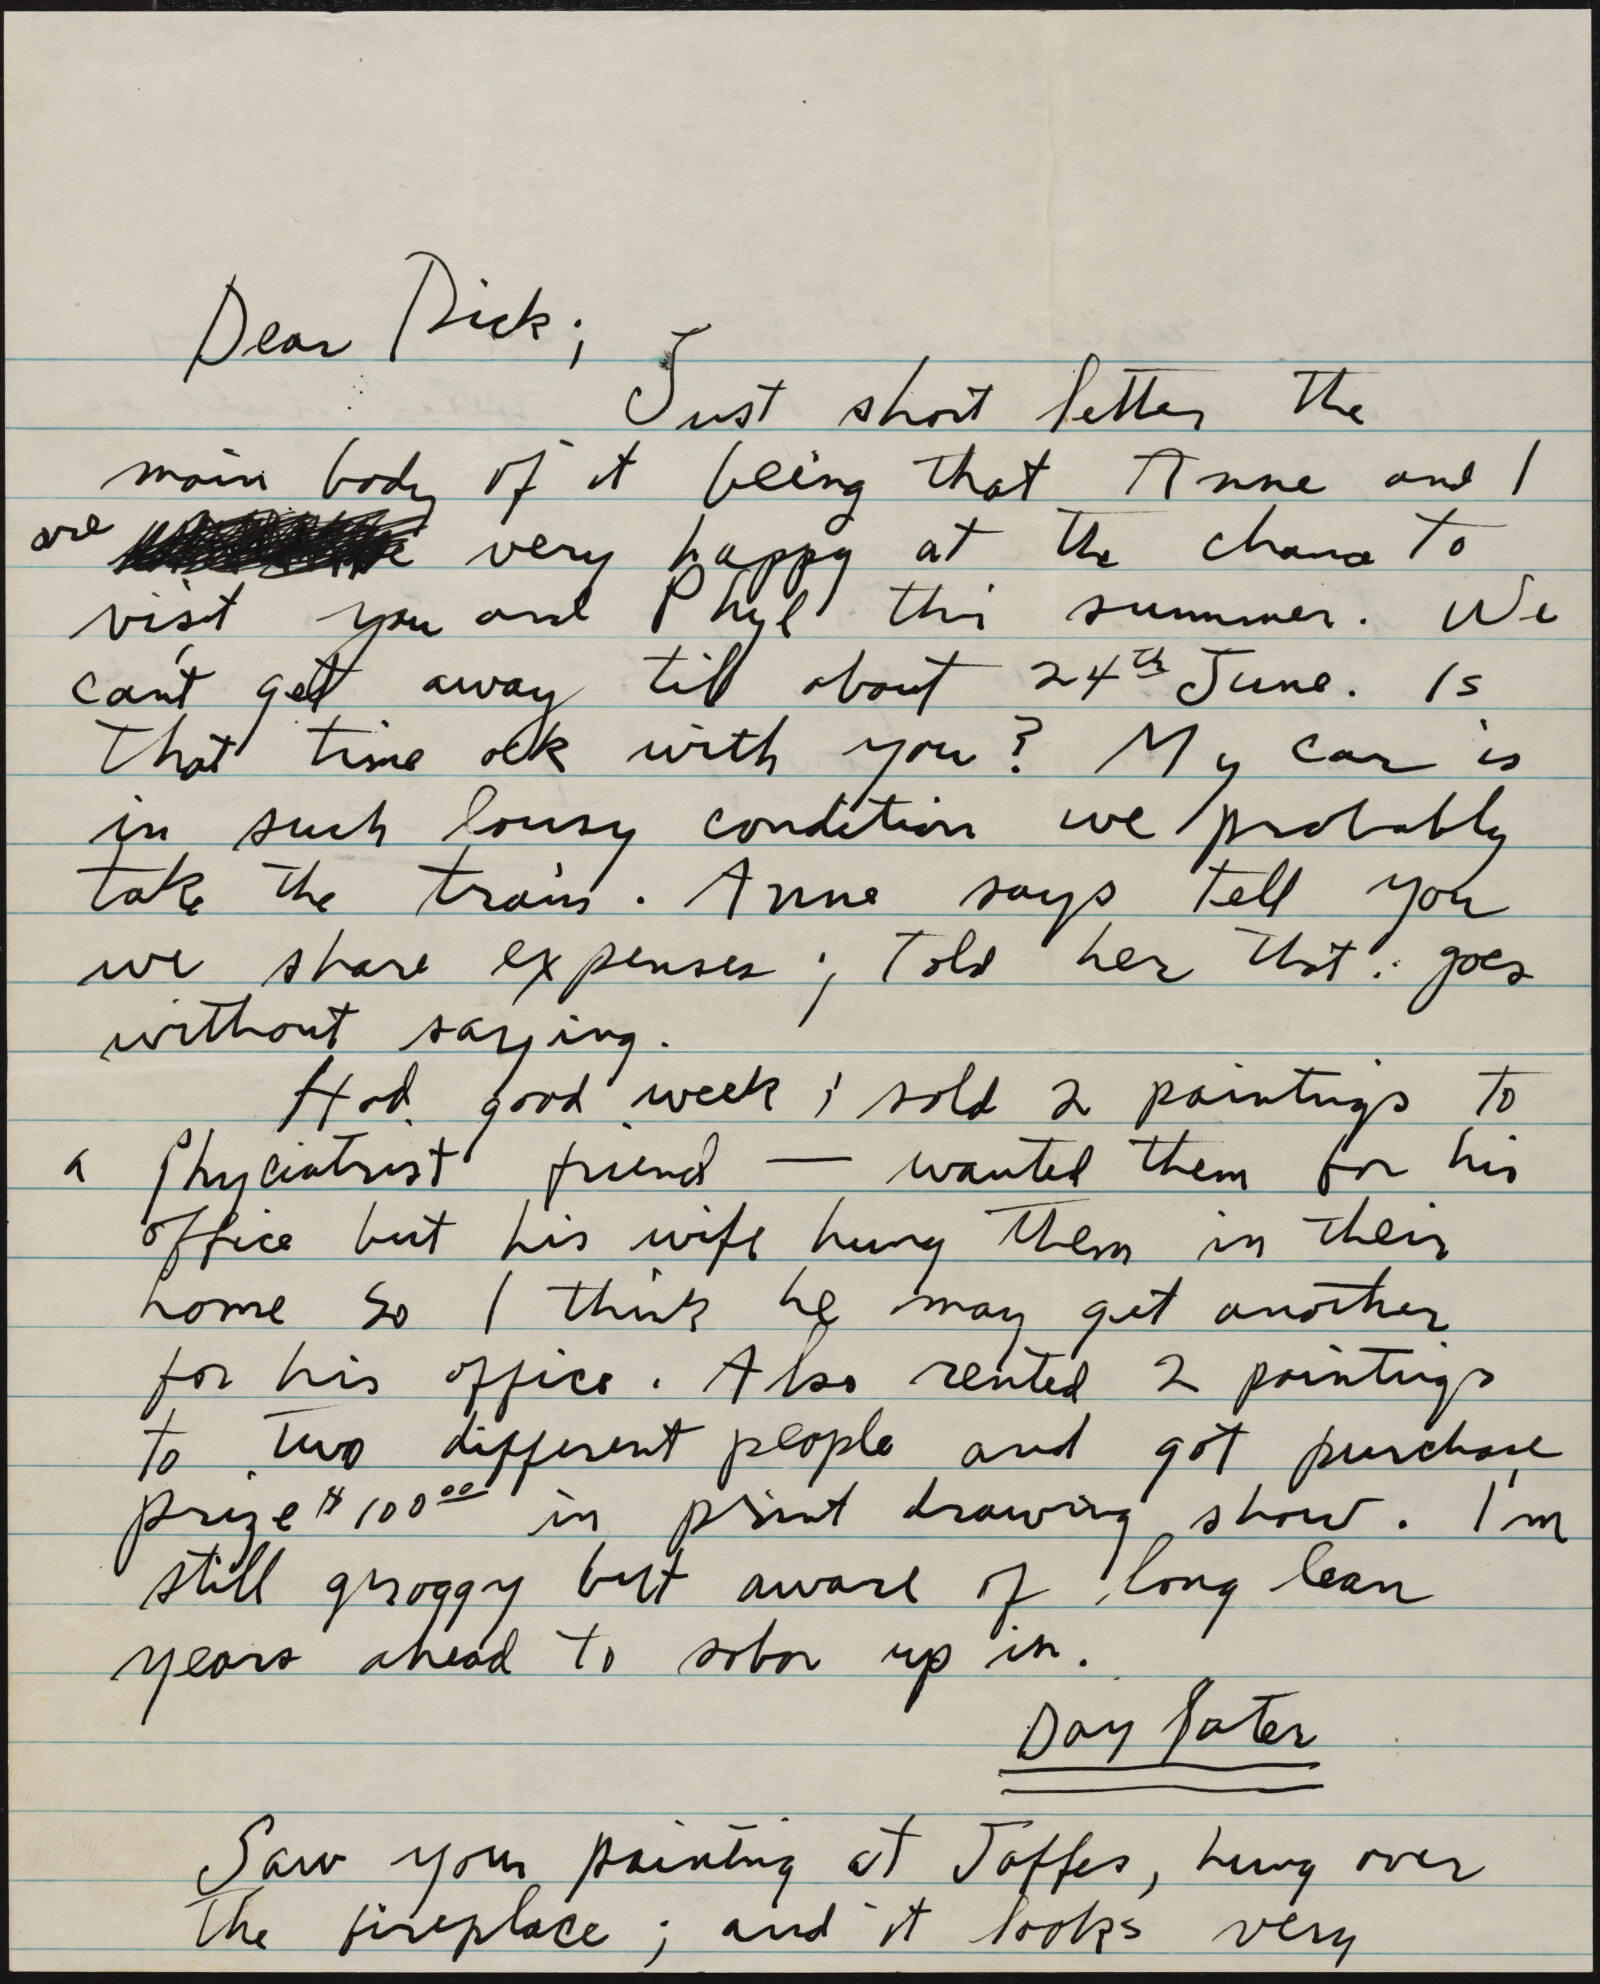 Dear Dick;
Just short letter the
main body of it being that Anne and I
are very happy at the chance to
visit you and Phyl this summer. We
can't get away til about 24th June. Is
that time ok with you? My car is
in such lousy condition we probably
take the train. Anne says tell you
we share expenses; told her that goes
without saying.
Had good week; sold 2 paintings to
a Phyciatrist friend — wanted them for his
office but his wife hung them in their
home so I think he may get another
for his office. Also rented 2 paintings
to two different people and got purchase
prize $100.00 in print drawing show. I'm
still groggy but aware of long lean
years ahead to sobor up in.
Day Later
Saw your painting at Jaffes, hung over
the fireplace; and it looks very